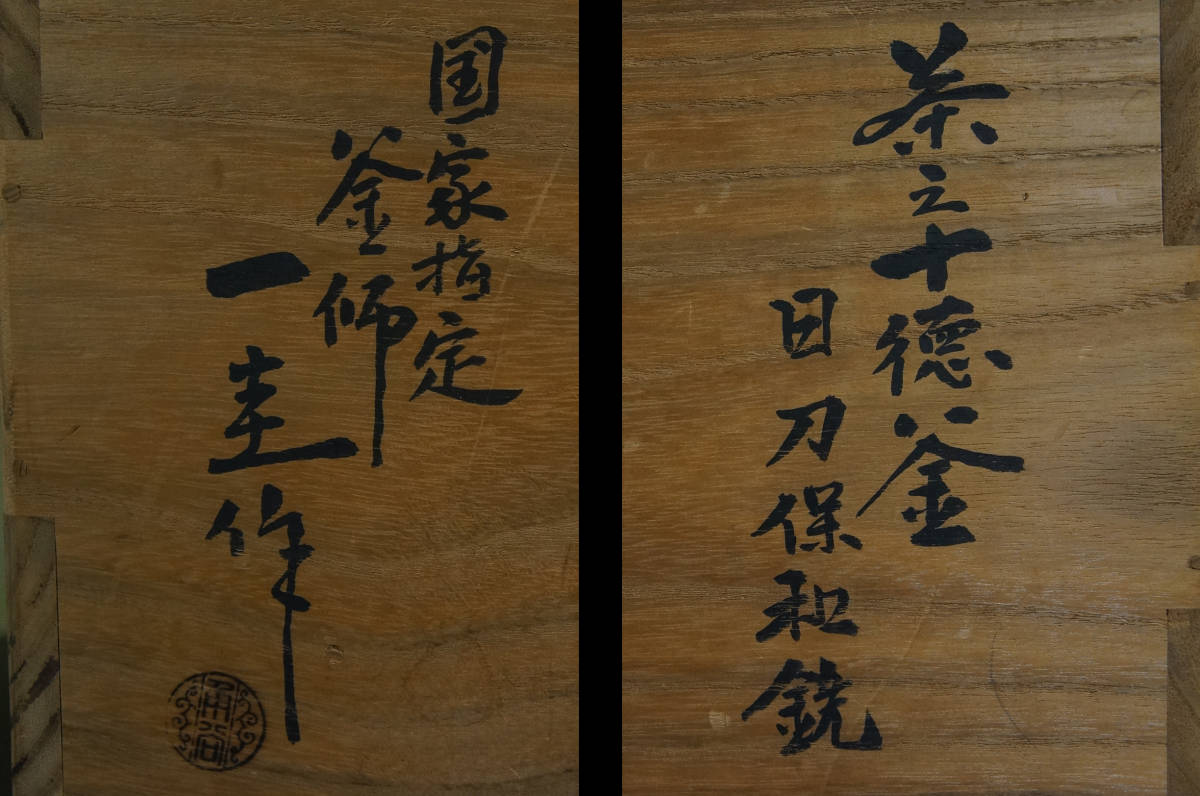 茶之十徳釜
日刀保和銑
国家指定
釜師
一圭作